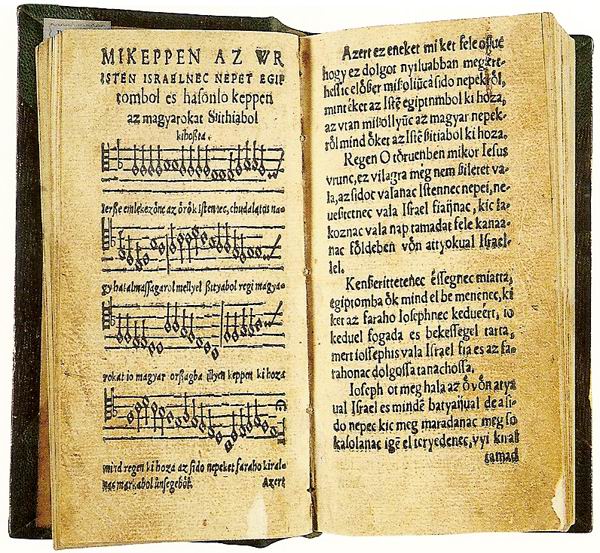 MIKEPPEN AZ WR
ISTEN ISRAELNEC NEPET EGIP
tombol es hasonlo keppen
az magyarokat Siithiabol
kihoßta.
Ierße emlekezönc az örök Istenrec, chudalatus na-
gy hatalmassagarol mellyel ßityabol regi magya-
rokat io magyar orßagba illyen keppen ki hoza
mind regen ki hoza az sido nepeket faraho kiral-
nac markabol ünsegeböl. Azert
Azert ez eneket mi két fele
hogy ez dolgot nyiluabban megert-
hessüc elößer mikolliüc a sido nepekröl,
mint éket az Istē egiptombol ki hoza,
az vtan mikollyüc az magyar nepek-
röl mind öket az Istē ßitiabol ki hoza.
Regen O töruenben mikor Iesus
vrunc, ez vilagra meg nem ßiletet va-
la, az sidot valanac Istennec nepei, ne-
ueßtetnec vala Israel fiaijnac, kic la-
koznac vala nap tamadat fele kanaa-
nac földeben vön attyokual Israel-
lel.
Kenßerittetenec éßsegnec miatta,
egiptomba ök mind el be menenec, ki
ket az faraho Iosephnec kedueért, io
keduel fogada es bekessegel tarta,
mert iossephis vala Israel fia es az fa-
rahonac dolgossa tanachossa,
Ioseph ot meg hala az ö vön atya
ual Israel es mindē batyaijual de a si-
do nepec kic meg maradanac meg so
kasolanac igē el teryedenec, vyi kiral
tamad